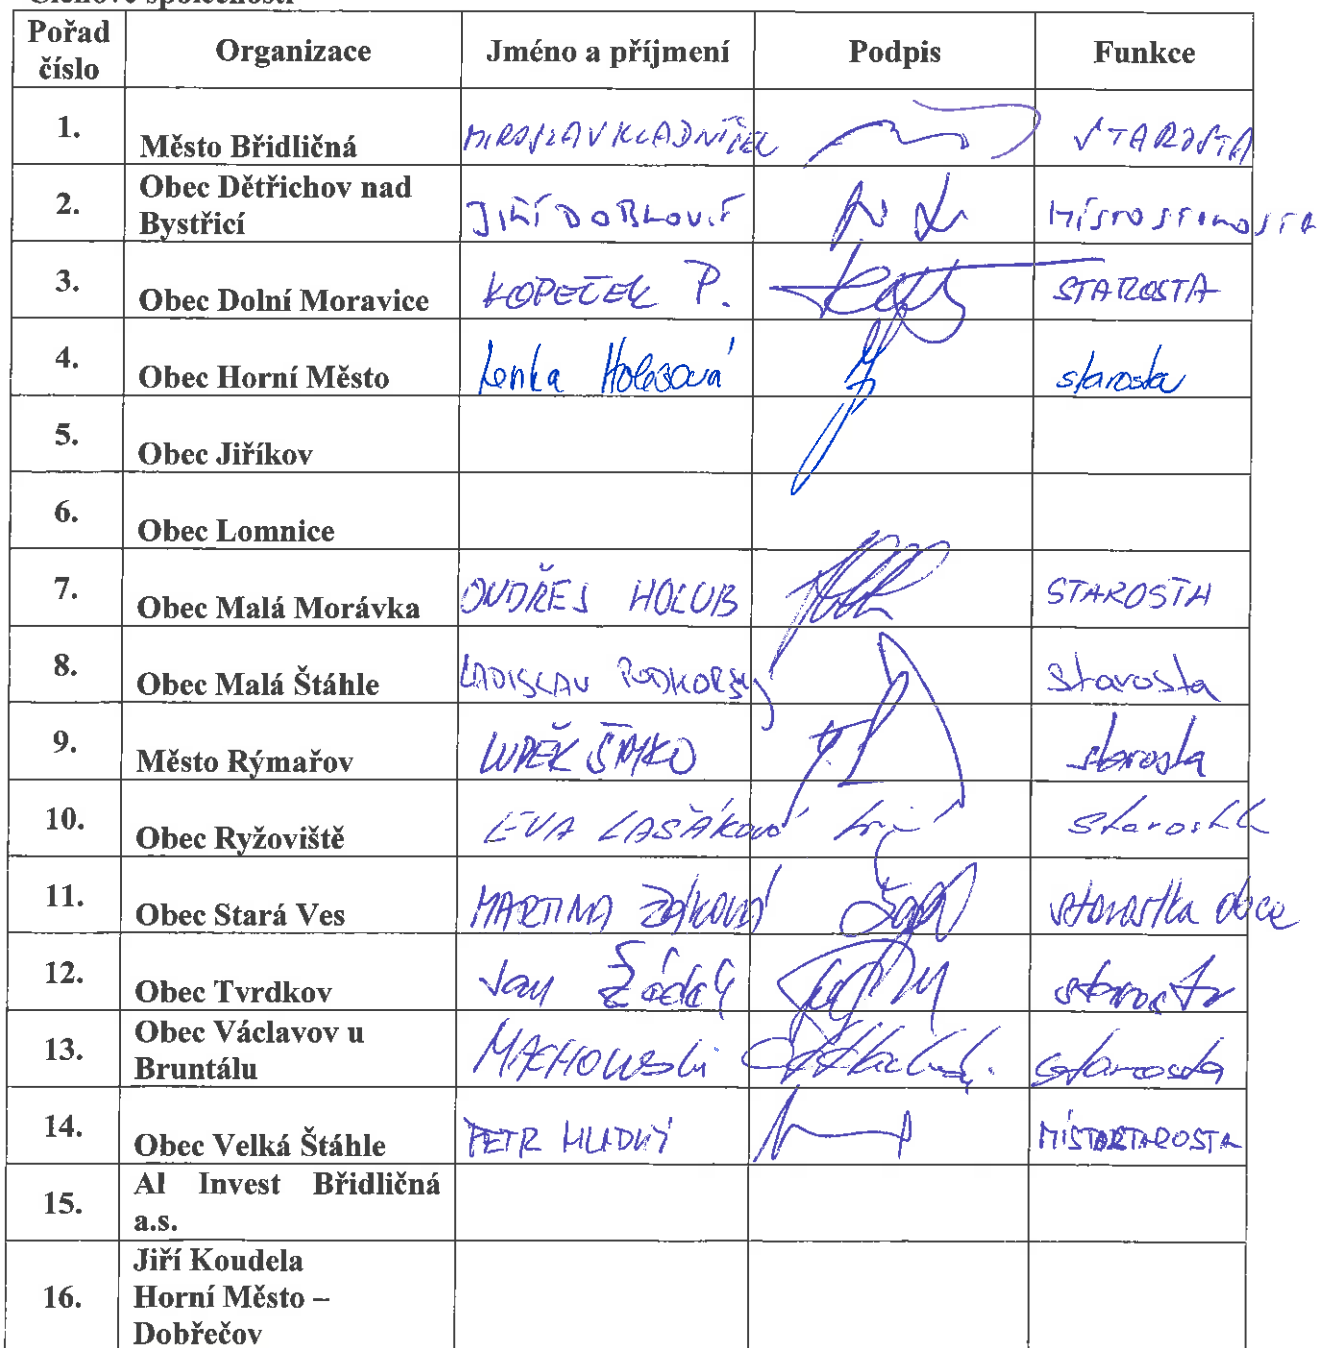 Členové společnosti
Pořad číslo Organizace Jméno a příjmení Podpis Funkce
1. Město Břidličná MIROSLAV KLADNÍČEK STAROSTA
2. Obec Dětřichov nad Bystřicí JIŘÍ MÍSTOSTAROSTA
3. Obec Dolní Moravice KOPEČEK P. STAROSTA
4. Obec Horní Město Lenka starosta
5. Obec Jiříkov
6. Obec Lomnice
7. Obec Malá Morávka ONDŘEJ HOLUB STAROSTA
8. Obec Malá Štáhle LADISLAV PODHORSKÝ starosta
9. Město Rýmařov LUDĚK ŠIMKO starosta
10. Obec Ryžoviště EVA LAŠÁKOVÁ starostka
11. Obec Stará Ves MARTINA ŽÁKOVÁ starostka obce
12. Obec Tvrdkov Jan starosta
13. Obec Václavov u Bruntálu starosta
14. Obec Velká Štáhle PETR HLADKÝ MÍSTOSTAROSTA
15. Al Invest Břidličná a.s.
16. Jiří Koudela Horní Město – Dobřečov